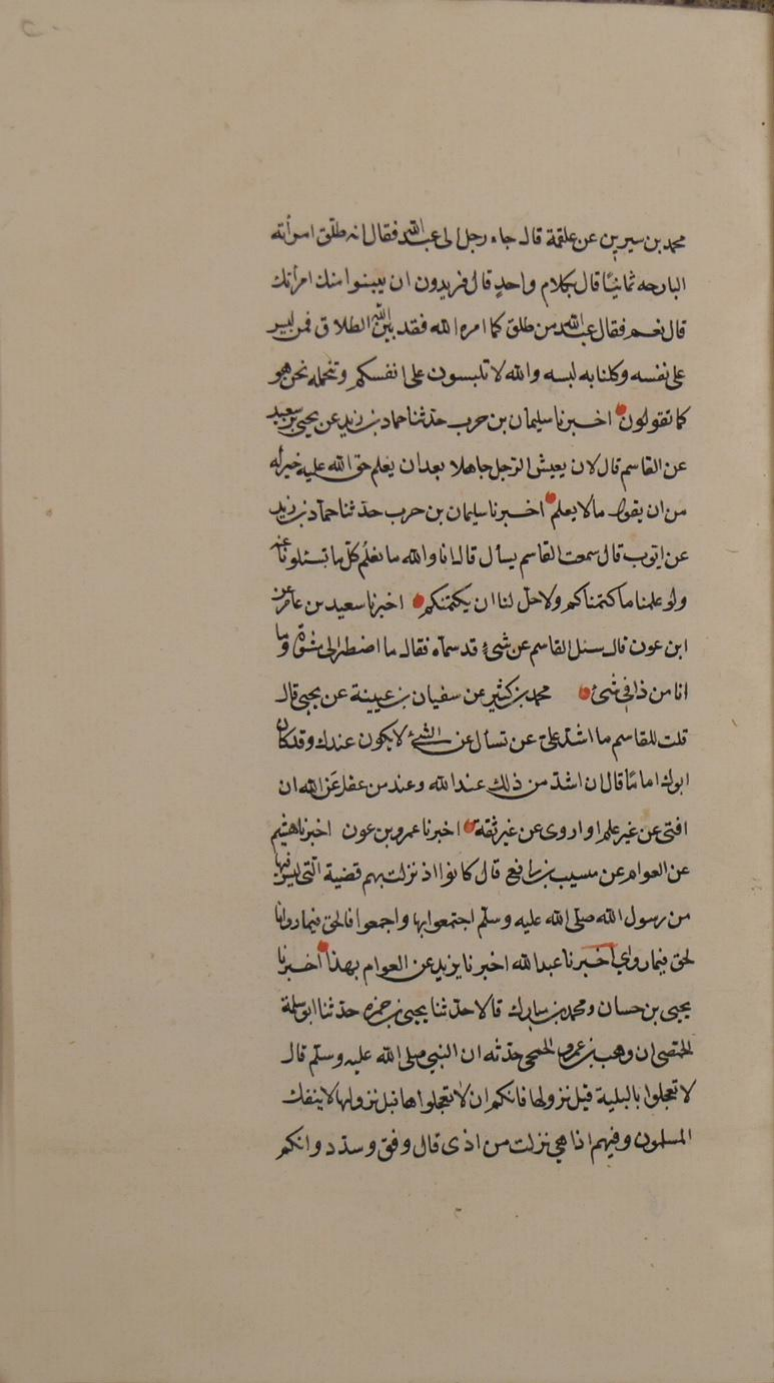 محمد بن سيرين عن علقمة قال جاء رجل الى عبد الله فقال انه طلق امرأته
البارحه ثمانيًا قال بكلام واحدٍ قال فريدون ان يبينوا منك امرأتك
قال نعم فقال عبد الله من طلق كما امره الله فقد بين الله الطلاق فمن لبس
على نفسه وكلنا به لبسه والله لا تلبسون على انفسكم ونتحمله نحن هو
كما تقولون اخبرنا سليمان بن حرب حدثنا حماد بن زيد عن يحيى بن سعيد
عن القاسم قال لان يعيش الرجل جاهلا بعد ان يعلم حق الله عليه خير له
من ان يقول ما لا يعلم اخبرنا سليمان بن حرب حدثنا حماد بن زيد
عن ايوب قال سمعت القاسم يسأل قال انا والله ما نعلم كل ما تسئلونا عنه
ولو علمنا ما كتمناكم ولا حل لنا ان نكتمكم اخبرنا سعيد بن عامر عن
ابن عون قال سئل القاسم عن شئ قد سماه فقال ما اضطر الى مشورة وما
انا من ذا في شئ محمد بن كثير عن سفيان بن عيينة عن يحيى قال
قلت للقاسم ما اشد علي عن تسأل عن الشئ لا يكون عندك وقد كان
ابوك امامًا قال ان اشد من ذلك عند الله وعند من عقل عن الله ان
افتى عن غير علم او اروى عن غير ثقة اخبرنا عمرو بن عون اخبرنا هشيم
عن العوام عن مسيب بن رافع قال كانوا اذ نزلت بهم قضية التى ليس فيها
من رسول الله صلى الله عليه وسلم اجتمعوا بها واجمعوا فالحق فيما روانا
لحق فيما رواي اخبرنا عبد الله اخبرنا يزيد عن العوام بهذا اخبرنا
يحيى بن حسان ومحمد بن سابرك قالا حدثنا يحيى بن حمزه حدثنا ابو سلمة
الحمصى ان وهب بن عمرو الجمحى حدثه ان النبي صلى الله عليه وسلم قال
لا تعجلوا بالبلية قبل نزولها فانكم ان لا تعجلوا ها قبل نزولها لا ينفك
المسلمون وفيهم اذا هي نزلت من اذى قال وفق وسدد وانكم